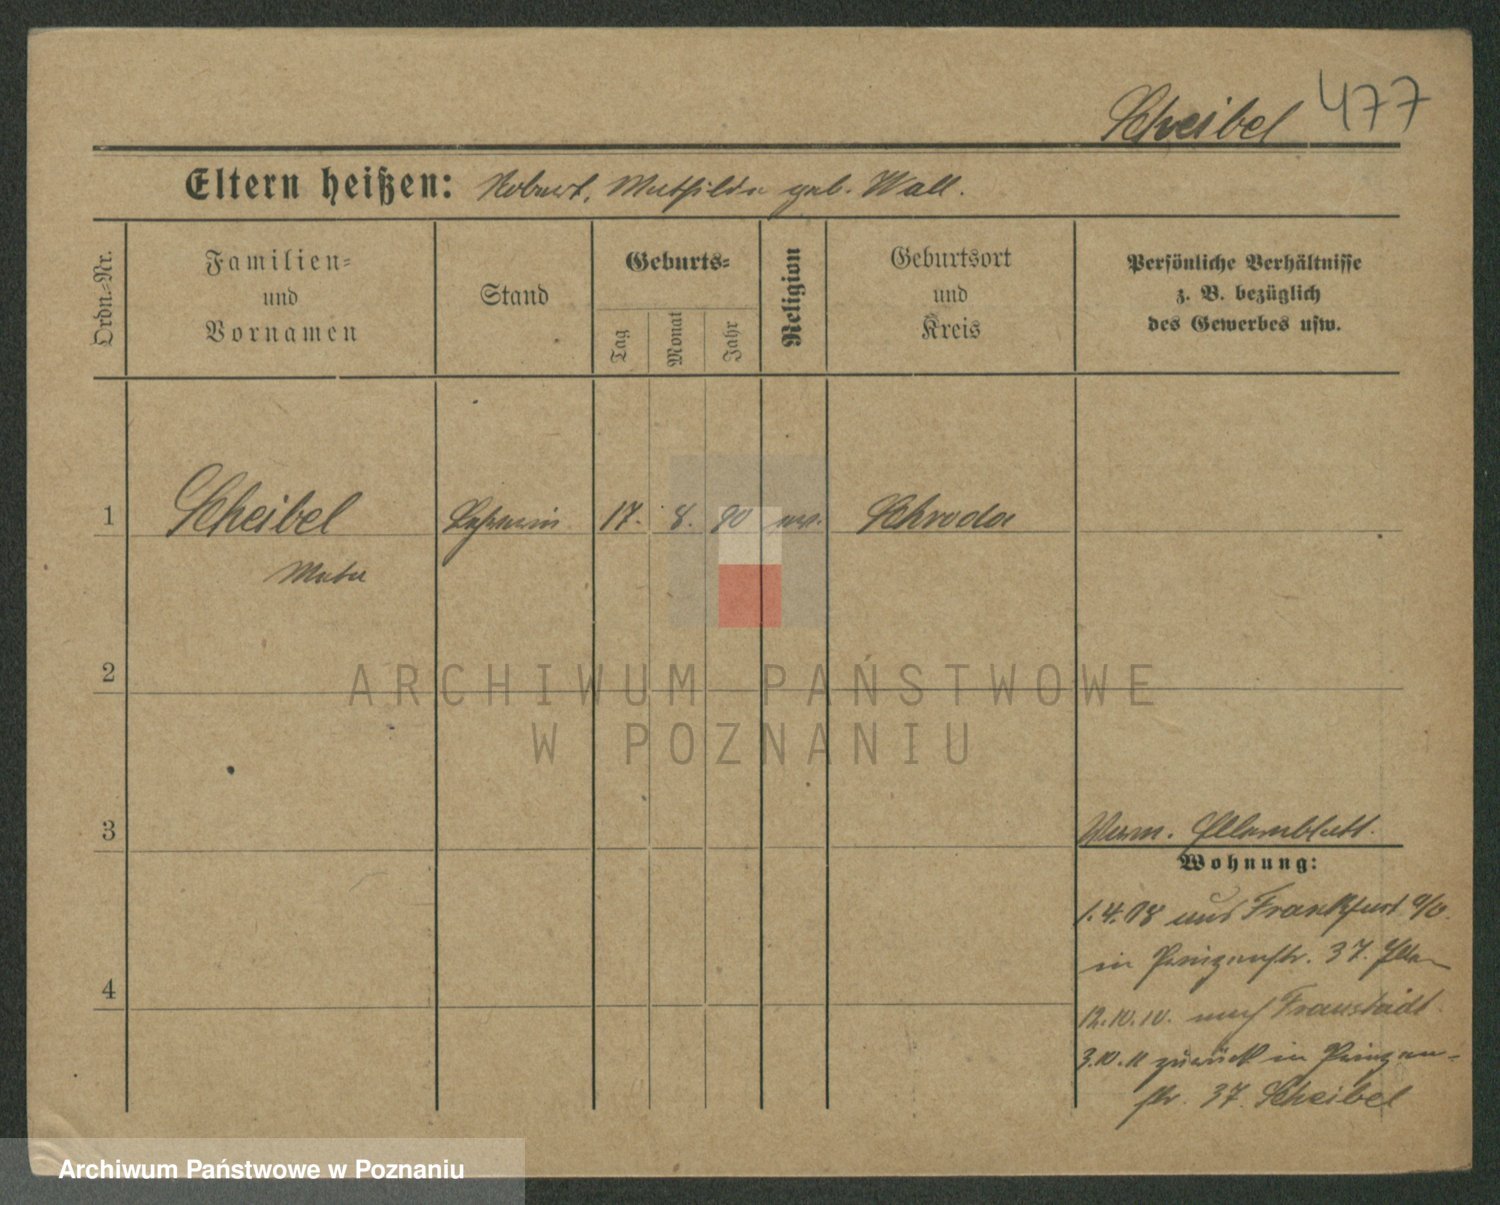 Scheibel 477
Eltern heißen: Robert, Mathilde geb. Wall.
Ordn.-Nr.
Familien-
und
Vornamen
Stand
Geburts-
Tag
Monat
Jahr
Religion
Geburtsort
und
Kreis
Persönliche Verhältnisse
z. B. bezüglich
des Gewerbes usw.
1 Scheibel Lehrerin 17. 8. 90 ev. Schroda
2
3
Verm. Elternblatt.
Wohnung:
1.4.08 aus Frankfurt a/O.
in Prinzenstr. 37. Eltern
4
12.10.10. nach Fraustadt.
3.10.11 zurück in Prinzen-
str. 37. Scheibel
ARCHIWUM PAŃSTWOWE
W POZNANIU
Archiwum Państwowe w Poznaniu